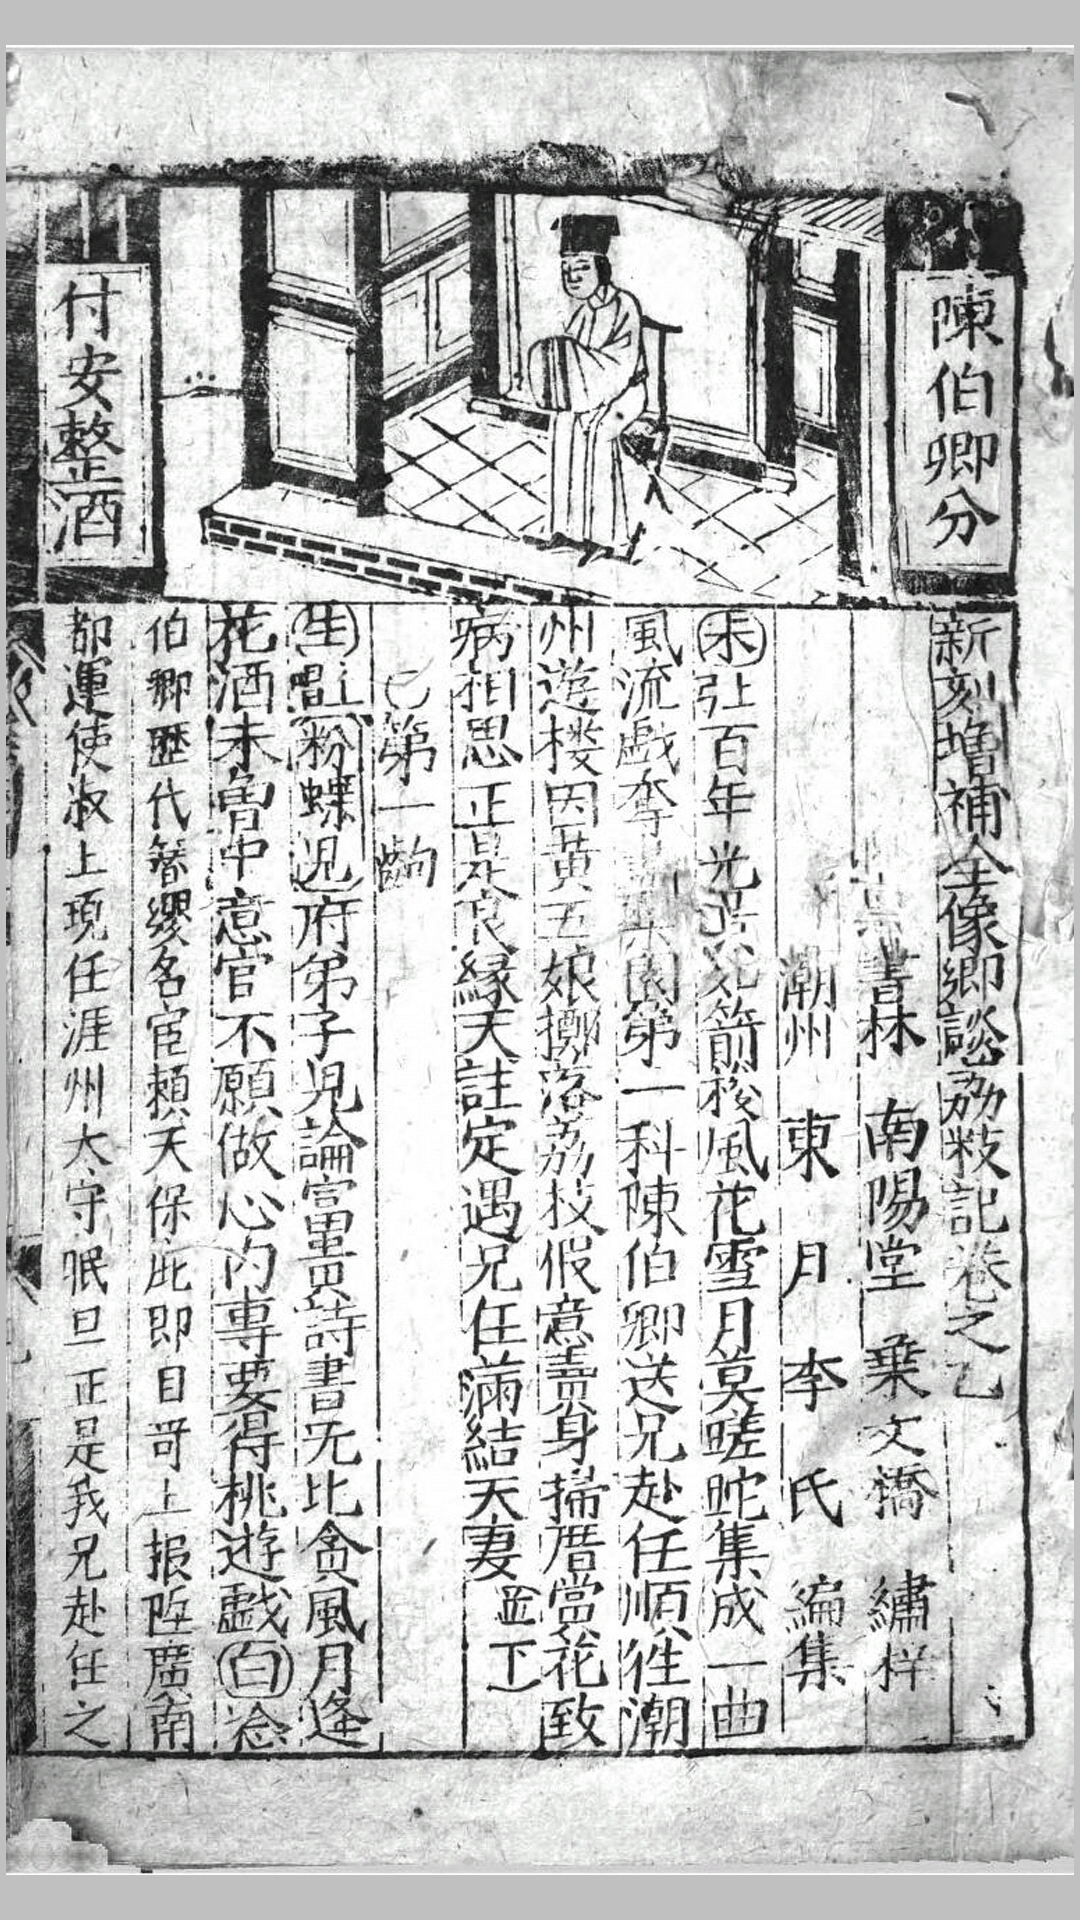 陳伯卿分
付安整酒
新刻增補全像鄉談荔枝記卷之乙
書林 南陽堂 葉文橋 繡梓
潮州 東月李氏 編集
末引百年光景如箭梭風花雪月莫蹉跎集成一曲
風流戲奪園第一科陳伯卿送兄赴任順徃潮
州遊樓因黃五娘擲落荔枝假意賣身掃厝當花致
病相思正是良緣天註定遇兄任滿結夫妻並下
乜第一齣
生唱上粉蝶児府弟子児論富貴詩書无比貪風月逢
花酒未曾中意官不願做心内專要得桃遊戯白念
伯卿歷代簪纓名宦賴天保庇即日哥上报陞廣南
都運使淑上現任涯州太守眠旦正是我兄赴任之